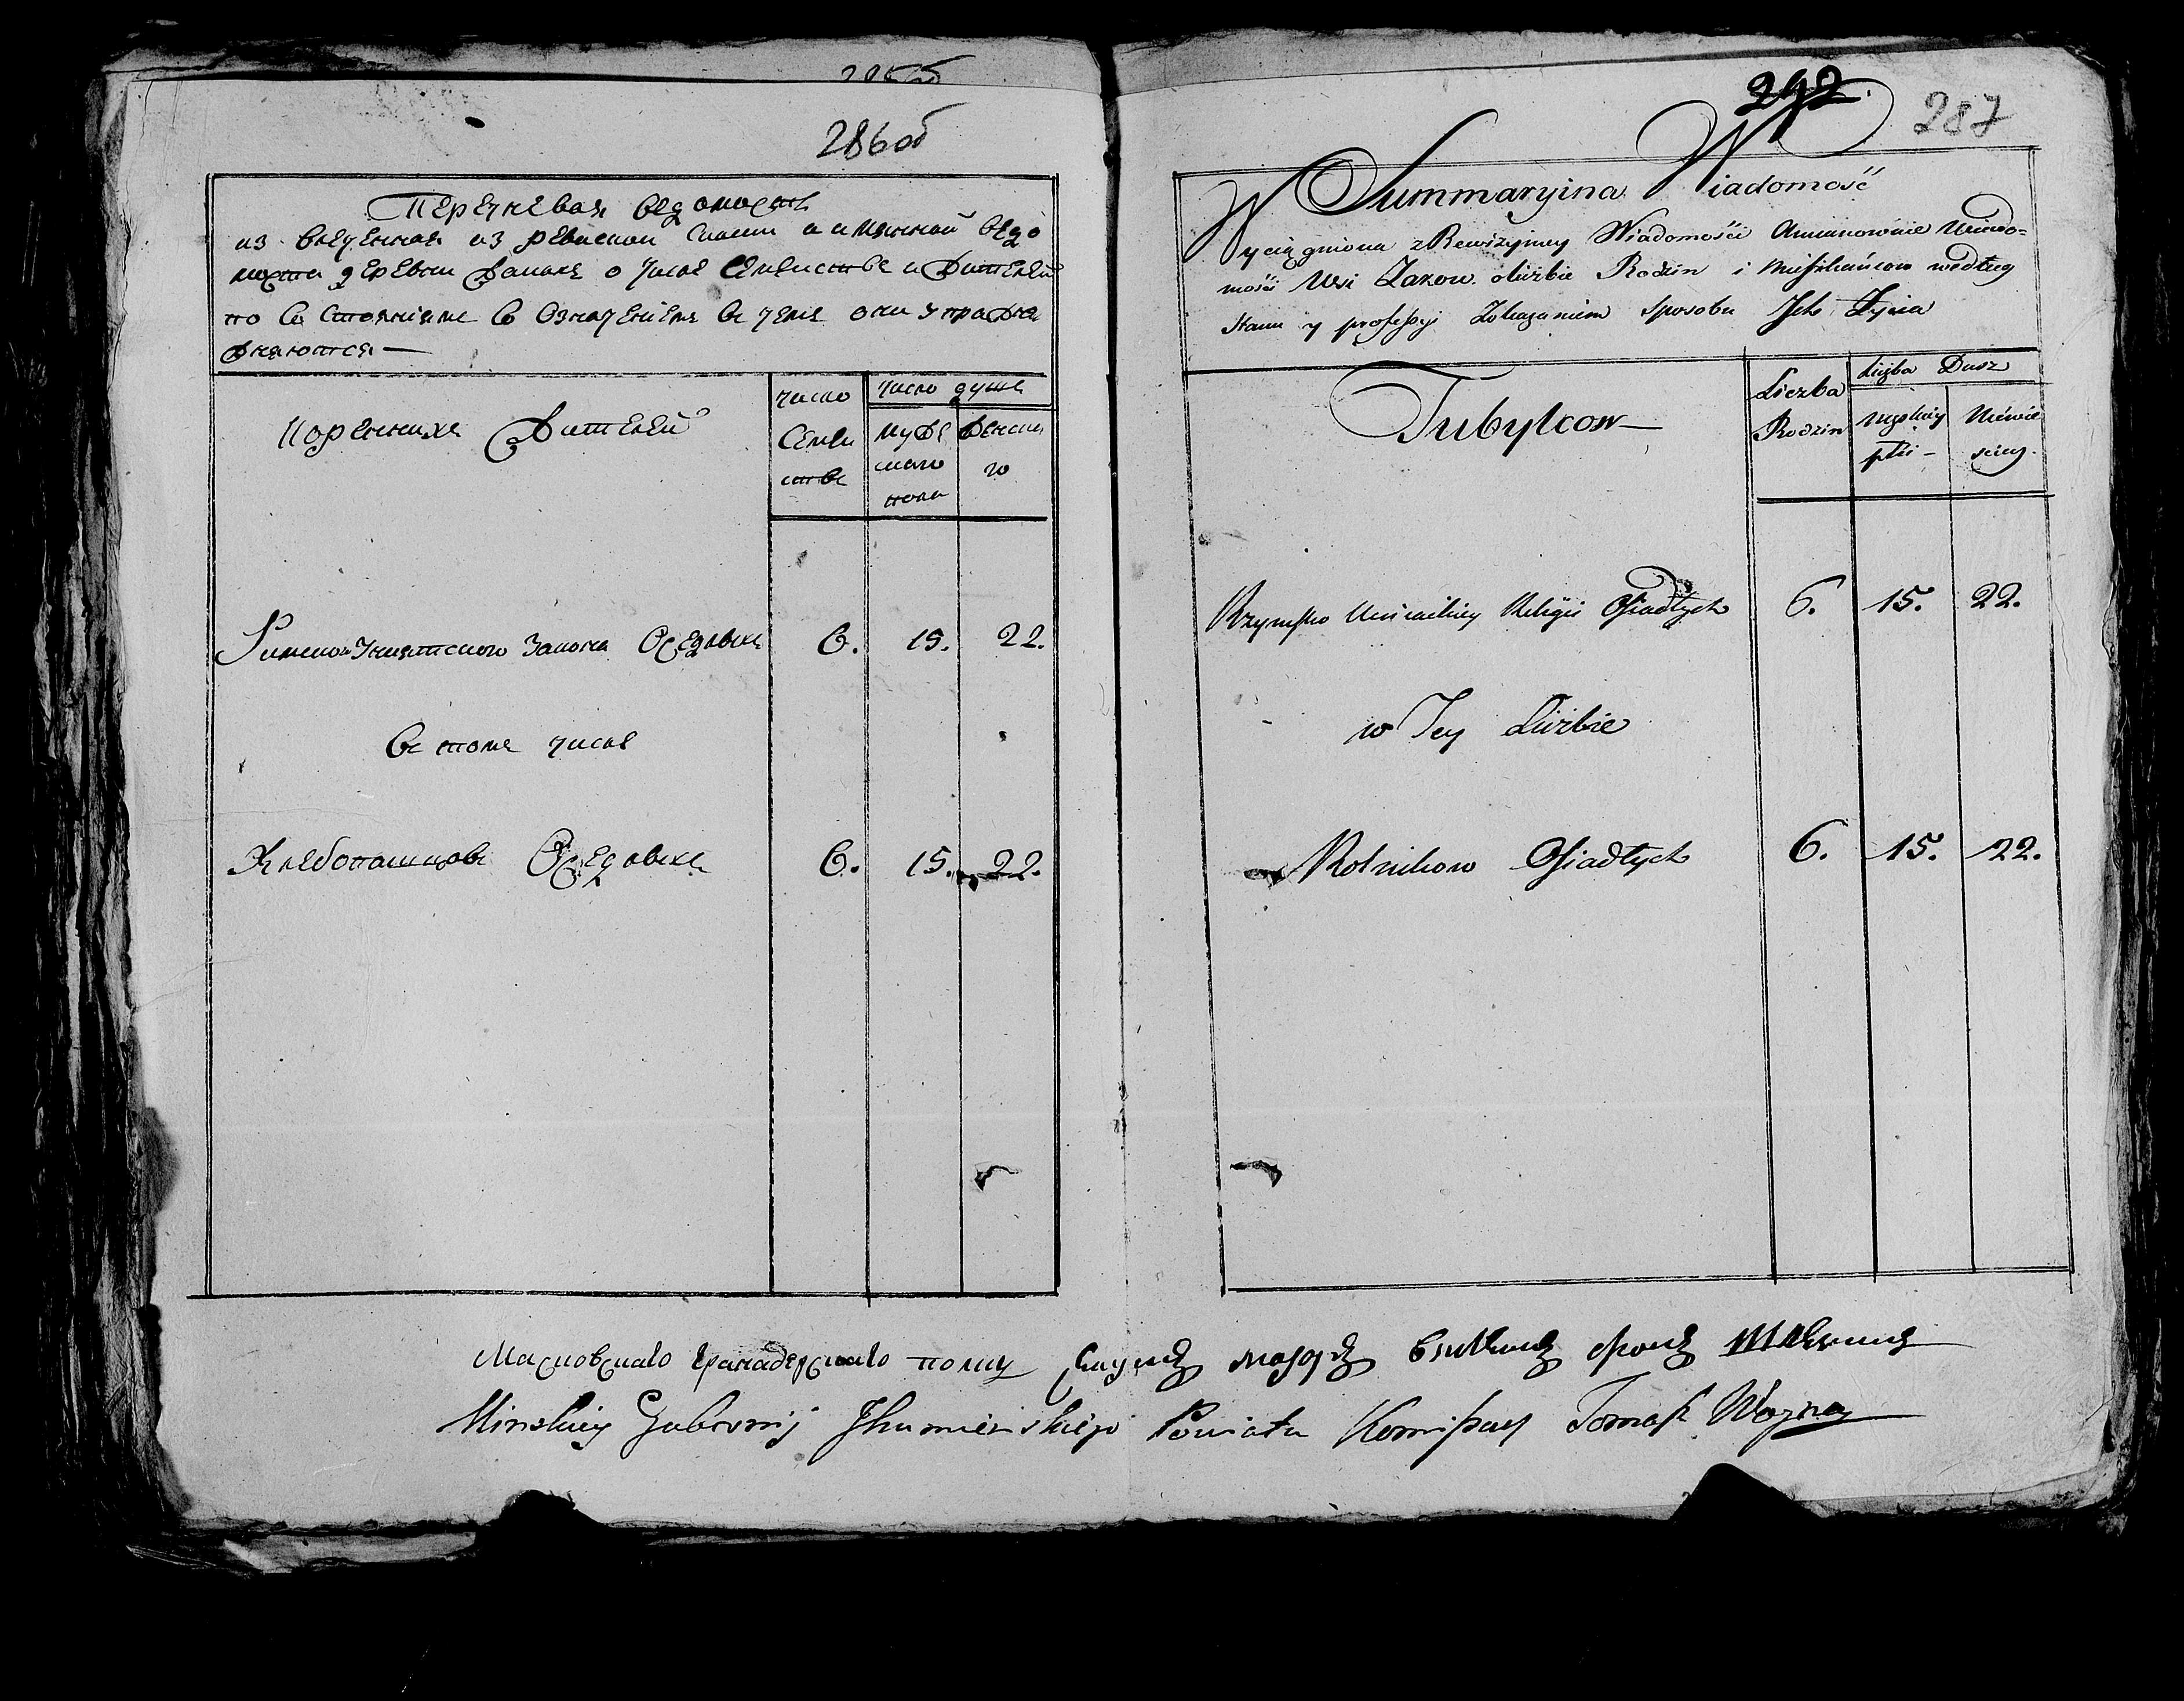 286об
Перечневая ведомость
из влеченная из ревиской скаски и имянной ведо
мости деревни Жаковъ о числе Семействъ и Жителей
по Состояниямъ Со Означениемъ въ чемъ они упражня
жняются —
Коренныхъ Жителей
число Семействъ
число душъ
мужескаго пола
женскаго
Римско Униятского Закона Оседлыхъ 6. 15. 22.
въ томъ числе
Хлебопашцовъ Оседлыхъ 6. 15. 22.
292
287
Summaryina Wiadomość
Wyciągniona z Rewizyiney Wiadomości Wiado=
mość Wsi Żakow o liczbie Rodzin i Mieszkańcow według
Stanu y professyi Zokazaniem sposobu Ich Życia
Tubylcow
Liczba Rodzin
Liczba Dusz
męskiey płci
Niewieściey
Rzymsko Unickiey Religii Osiadłych 6. 15. 22.
w Tey Liczbie
Rolnikow Osiadłych 6. 15. 22.
Московскаго гранадерскаго полку Секундъ маюръ фонъ
Minskiey Gubernij Jhumienskiego Powiatu Komissarz Tomasz Wazna